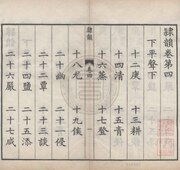 隸韻卷第四
下平聲下
十二庚 十三耕
十四清 十五青
十六蒸 十七登
隸韻 卷四
十八尤 十九侯
二十幽 二十一侵
二十二覃 二十三談
二十四鹽 二十五添
二十六嚴 二十七咸